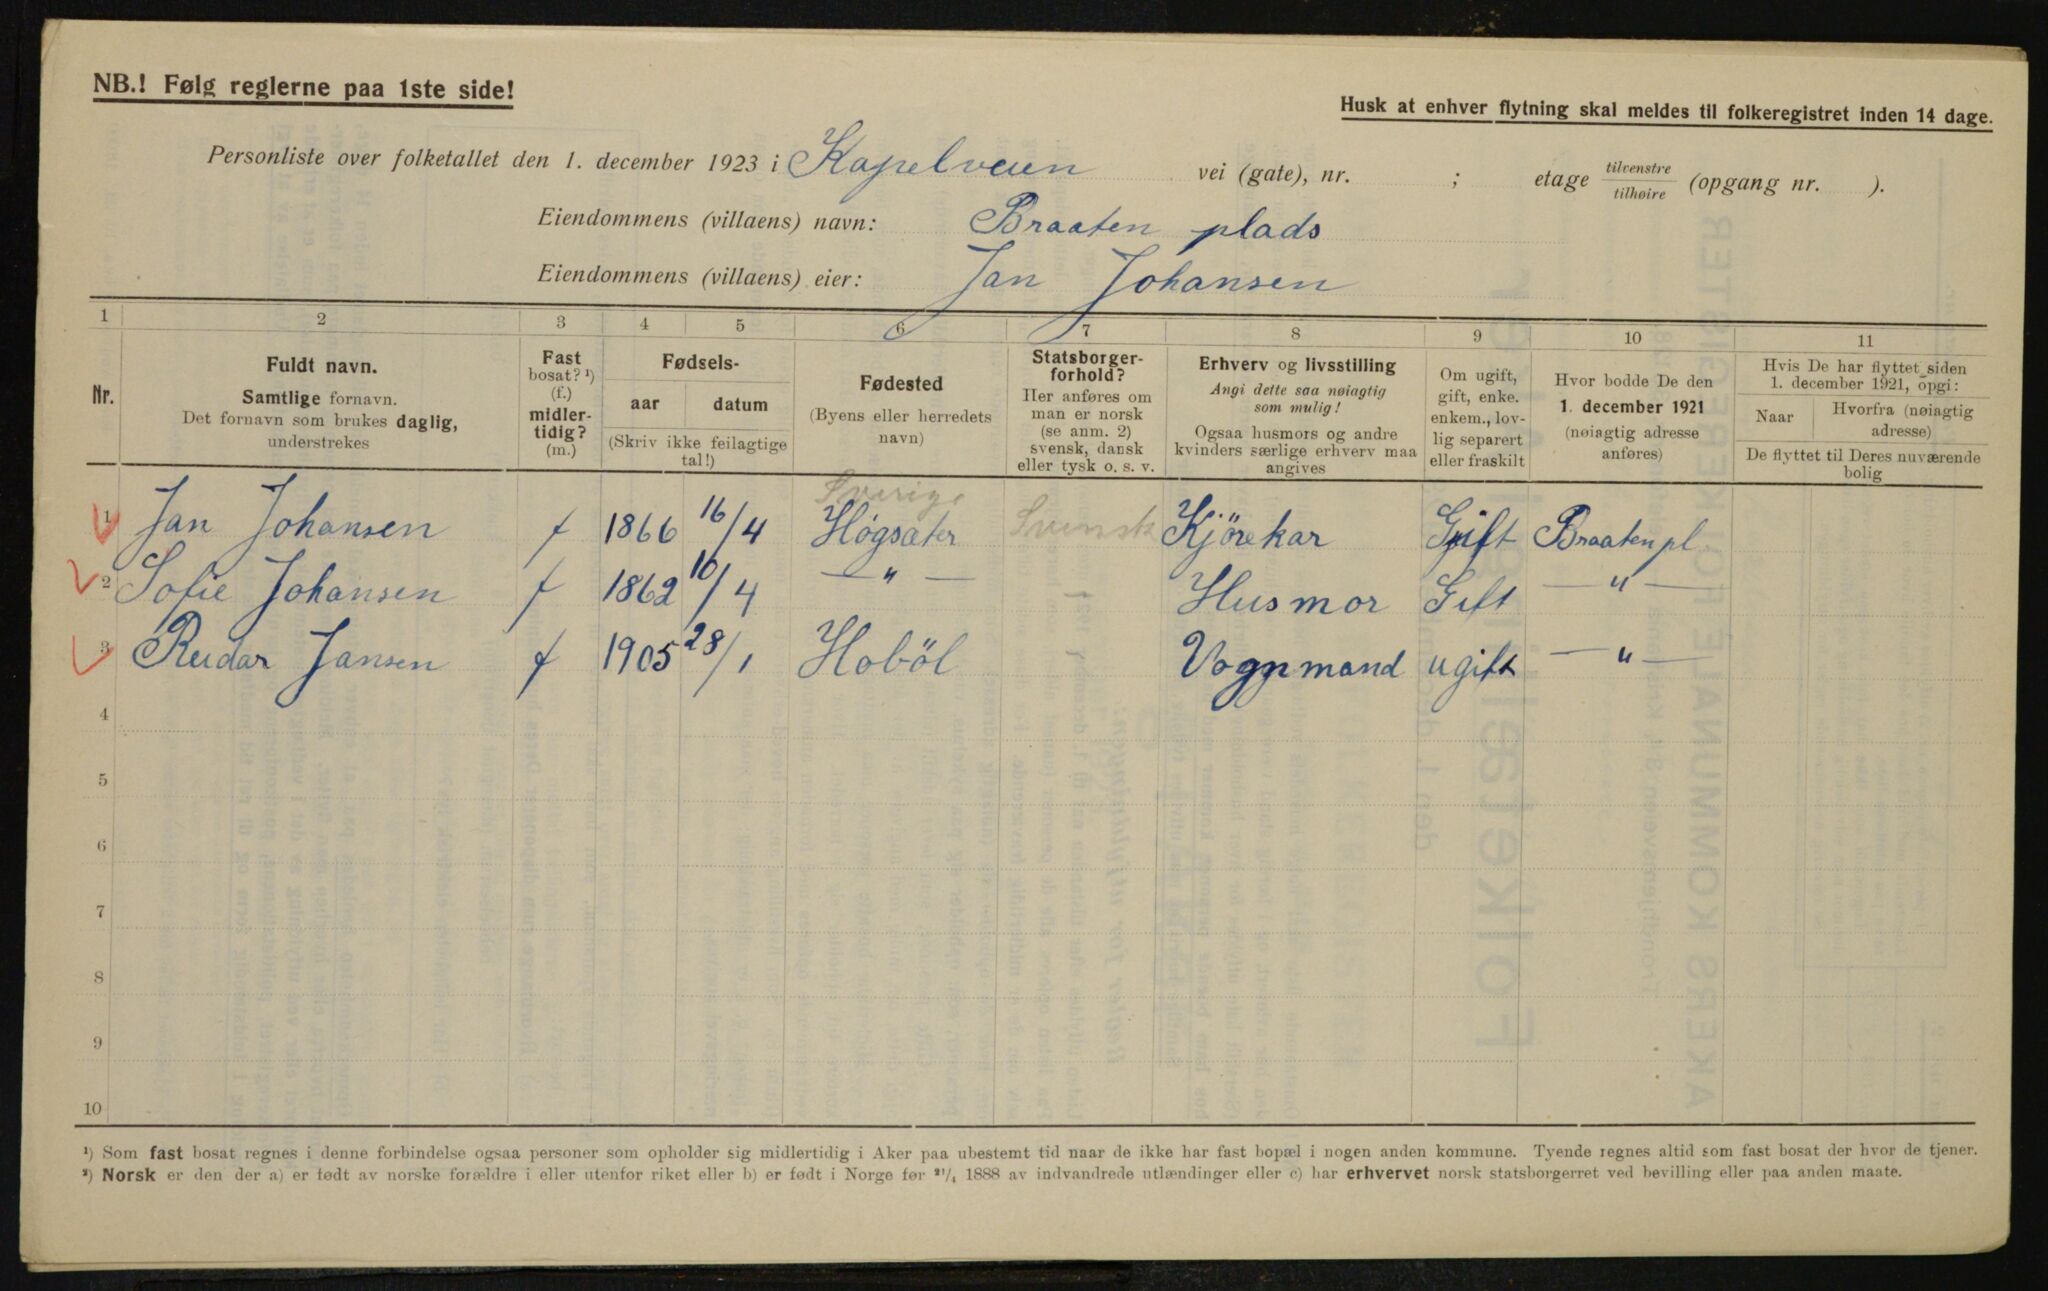 NB.! Følg reglerne paa 1ste side!
Husk at enhver flytning skal meldes til folkeregistret inden 14 dage.
Personliste over folketallet den 1. december 1923 i Kapelveien vei (gate), nr. ; etage tilvenstre/tilhøire (opgang nr. ).
Eiendommens (villaens) navn: Braaten plads
Eiendommens (villaens) eier: Jan Johansen
1 2 3 4 5 6 7 8 9 10 11
Nr.
Fuldt navn.
Samtlige fornavn.
Det fornavn som brukes daglig,
understrekes
Fast
bosat? ¹)
(f.)
midler-
tidig?
(m.)
Fødsels-
aar datum
(Skriv ikke feilagtige
tal!)
Fødested
(Byens eller herredets
navn)
Statsborger-
forhold?
Her anføres om
man er norsk
(se anm. 2)
svensk, dansk
eller tysk o. s. v.
Erhverv og livsstilling
Angi dette saa nøiagtig
som mulig!
Ogsaa husmors og andre
kvinders særlige erhverv maa
angives
Om ugift,
gift, enke.
enkem., lov-
lig separert
eller fraskilt
Hvor bodde De den
1. december 1921
(nøiagtig adresse
anføres)
Hvis De har flyttet siden
1. december 1921, opgi:
Naar
Hvorfra (nøiagtig
adresse)
De flyttet til Deres nuværende
bolig
Sverige
1 Jan Johansen f 1866 16/4 Høgsæter Svensk Kjörekar Gift Braaten pl
2 Sofie Johansen f 1862 10/4 — " — Husmor Gift — " —
3 Reidar Jansen f 1905 28/1 Hoböl Vognmand ugift — " —
4
5
6
7
8
9
10
¹) Som fast bosat regnes i denne forbindelse ogsaa personer som opholder sig midlertidig i Aker paa ubestemt tid naar de ikke har fast bopæl i nogen anden kommune. Tyende regnes altid som fast bosat der hvor de tjener.
²) Norsk er den der a) er født av norske forældre i eller utenfor riket eller b) er født i Norge før ²¹/₄ 1888 av indvandrede utlændinger eller c) har erhvervet norsk statsborgerret ved bevilling eller paa anden maate.